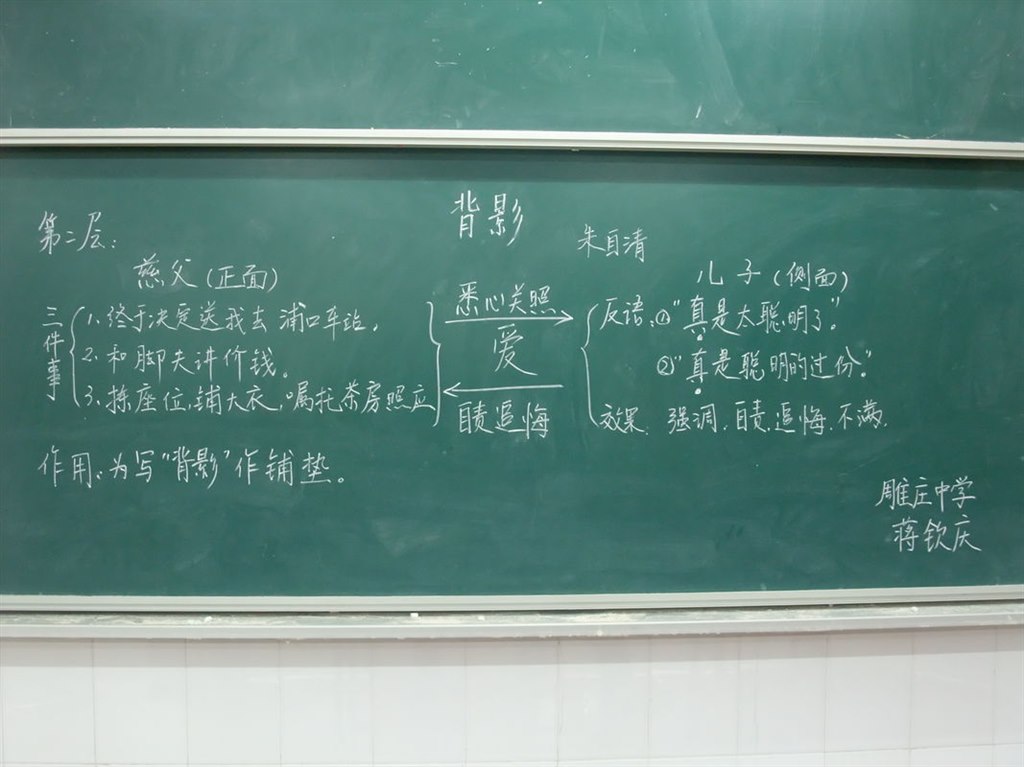 背影
朱自清
第二层:
慈父(正面)
三件事
1、终于决定送我去浦口车站,
2、和脚夫讲价钱。
3、拣座位,铺大衣,嘱托茶房照应
悉心关照
爱
自责追悔
儿子(侧面)
反语:①"真是太聪明了"
②"真是聪明的过份"
效果:强调、自责、追悔、不满.
作用:为写"背影"作铺垫。
雕庄中学
蒋钦庆